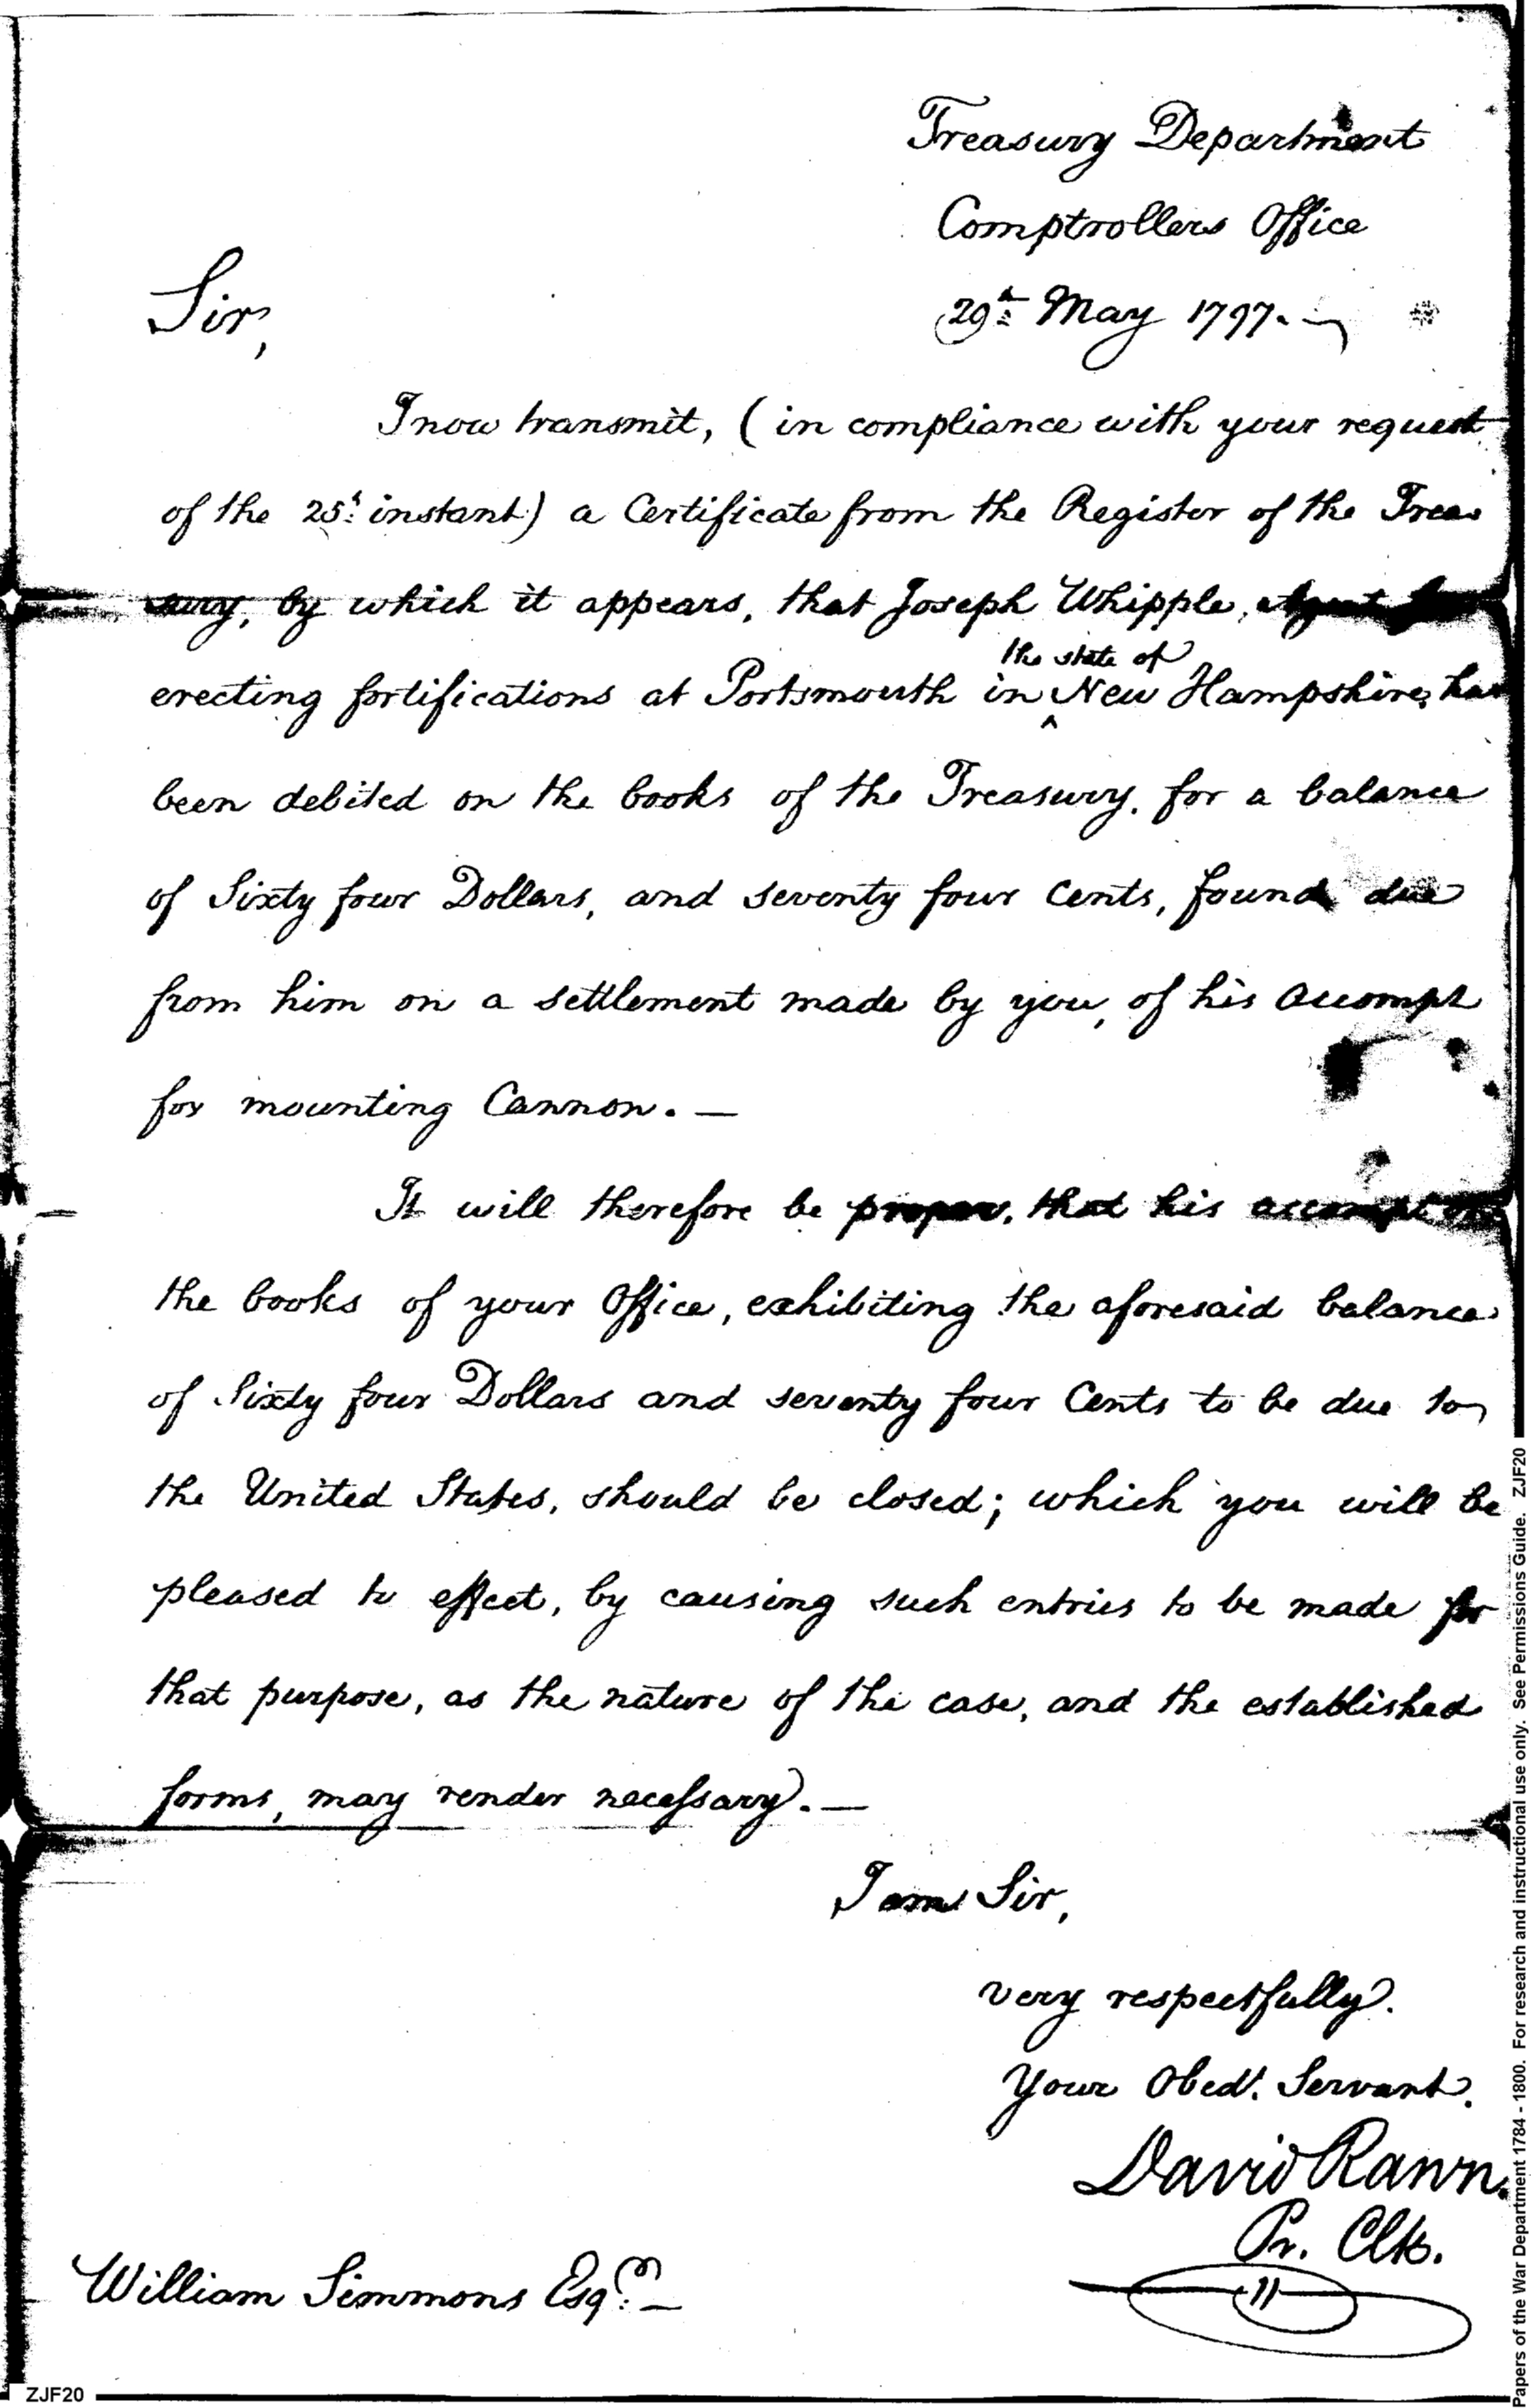 Treasury Department
Comptrollers Office
29th May 1797.
Sir,
I now transmit, (in compliance with your request
of the 25t. instant) a Certificate from the Register of the Trea-
sury, by which it appears, that Joseph Whipple, Agent
the state of
erecting fortifications at Portsmouth in ^ New Hampshire, has
been debited on the books of the Treasury, for a balance
of Sixty four Dollars, and seventy four Cents, found due
from him on a settlement made by you, of his accompt
for mounting Cannon. —
It will therefore be proper, that his accompt on
the books of your Office, exhibiting the aforesaid balance
of Sixty four Dollars and seventy four Cents to be due to
the United States, should be closed; which you will be
pleased to effect, by causing such entries to be made for
that purpose, as the nature of the case, and the established
forms, may render necessary. —
I am Sir,
very respectfully.
Your Obedt. Servant.
David Rawn.
Pr. Clk.
William Simmons Esqr. —
ZJF20
Papers of the War Department 1784 - 1800. For research and instructional use only. See Permissions Guide. ZJF20